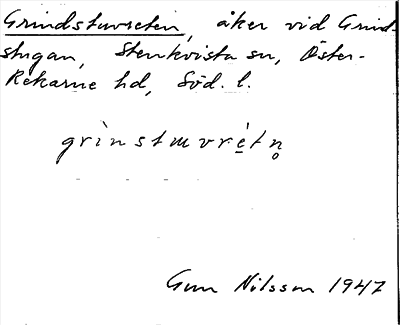 Grindstuvreten, åker vid Grind-
stugan, Stenkvista sn, Öster-
Rekarne hd, Söd. l.
grìnstɯvrètn̥
Gun Nilsson 1947